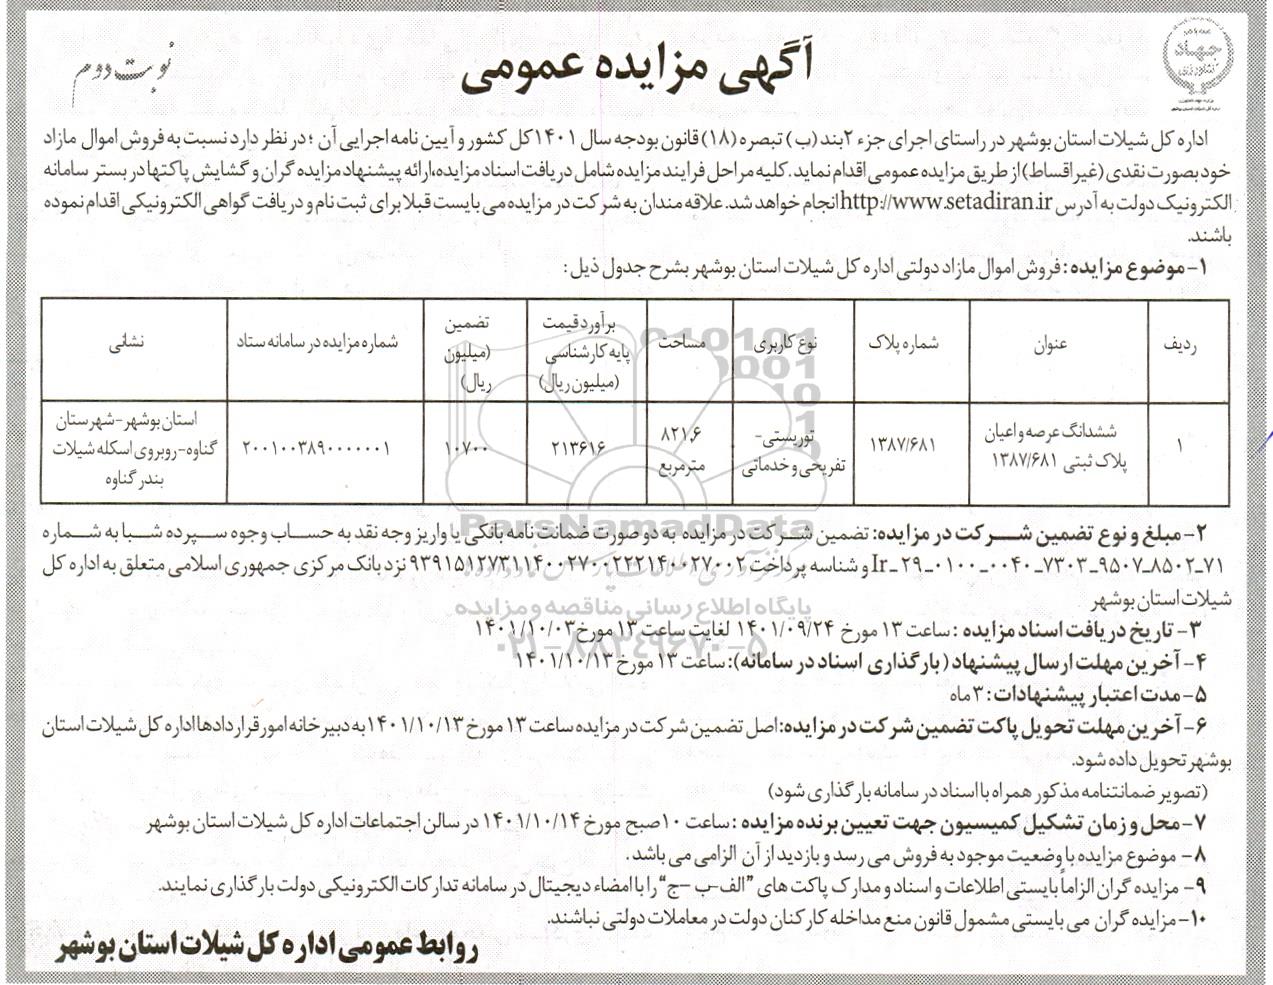 آگهی مزایده عمومی
نوبت دوم
جهاد
کشاورزی
اداره کل شیلات استان بوشهر در راستای اجرای جزء ۲بند (ب) تبصره (۱۸) قانون بودجه سال ۱۴۰۱کل کشور و آیین نامه اجرایی آن ؛ در نظر دارد نسبت به فروش اموال مازاد
خود بصورت نقدی (غیر اقساط) از طریق مزایده عمومی اقدام نماید. کلیه مراحل فرایند مزایده شامل دریافت اسناد مزایده، ارائه پیشنهاد مزایده گران و گشایش پاکتها در بستر سامانه
الکترونیک دولت به آدرس http://www.setadiran.ir انجام خواهد شد. علاقه مندان به شرکت در مزایده می بایست قبلا برای ثبت نام و دریافت گواهی الکترونیکی اقدام نموده
باشند.
۱- موضوع مزایده : فروش اموال مازاد دولتی اداره کل شیلات استان بوشهر بشرح جدول ذیل :
ردیف | عنوان | شماره پلاک | نوع کاربری | مساحت | برآورد قیمت پایه کارشناسی (میلیون ریال) | تضمین (میلیون ریال) | شماره مزایده در سامانه ستاد | نشانی
۱ | ششدانگ عرصه و اعیان پلاک ثبتی ۱۳۸۷/۶۸۱ | ۱۳۸۷/۶۸۱ | توریستی- تفریحی و خدماتی | ۸۲۱,۶ مترمربع | ۲۱۳۶۱۶ | ۱۰۷۰۰ | ۲۰۰۱۰۰۳۸۹۰۰۰۰۰۰۱ | استان بوشهر-شهرستان گناوه-روبروی اسکله شیلات بندر گناوه
۲- مبلغ و نوع تضمین شرکت در مزایده: تضمین شرکت در مزایده به دو صورت ضمانت نامه بانکی یا واریز وجه نقد به حساب وجوه سپرده شبا به شماره
۷۱_۸۵۰۲_۹۵۰۷_۷۳۰۳_۰۰۴۰_۰۱۰۰_۲۹_Ir و شناسه پرداخت ۹۳۹۱۵۱۲۷۳۱۱۴۰۰۲۷۰۰۲۲۲۱۴۰۰۲۷۰۰۲ نزد بانک مرکزی جمهوری اسلامی متعلق به اداره کل
شیلات استان بوشهر
۳- تاریخ دریافت اسناد مزایده : ساعت ۱۳ مورخ ۱۴۰۱/۰۹/۲۴ لغایت ساعت ۱۳ مورخ ۱۴۰۱/۱۰/۰۳
۴- آخرین مهلت ارسال پیشنهاد (بارگذاری اسناد در سامانه): ساعت ۱۳ مورخ ۱۴۰۱/۱۰/۱۳
۵- مدت اعتبار پیشنهادات : ۳ ماه
۶- آخرین مهلت تحویل پاکت تضمین شرکت در مزایده: اصل تضمین شرکت در مزایده ساعت ۱۳ مورخ ۱۴۰۱/۱۰/۱۳ به دبیرخانه امور قراردادها اداره کل شیلات استان
بوشهر تحویل داده شود.
(تصویر ضمانتنامه مذکور همراه با اسناد در سامانه بارگذاری شود)
۷- محل و زمان تشکیل کمیسیون جهت تعیین برنده مزایده : ساعت ۱۰صبح مورخ ۱۴۰۱/۱۰/۱۴ در سالن اجتماعات اداره کل شیلات استان بوشهر
۸- موضوع مزایده با وضعیت موجود به فروش می رسد و بازدید از آن الزامی می باشد .
۹- مزایده گران الزاماً بایستی اطلاعات و اسناد و مدارک پاکت های "الف-ب -ج" را با امضاء دیجیتال در سامانه تدارکات الکترونیکی دولت بارگذاری نمایند.
۱۰- مزایده گران می بایستی مشمول قانون منع مداخله کارکنان دولت در معاملات دولتی نباشند.
روابط عمومی اداره کل شیلات استان بوشهر
ParsNamadData
پایگاه اطلاع رسانی مناقصه و مزایده
۰۲۱-۸۸۳۴۹۶۷۰-۵